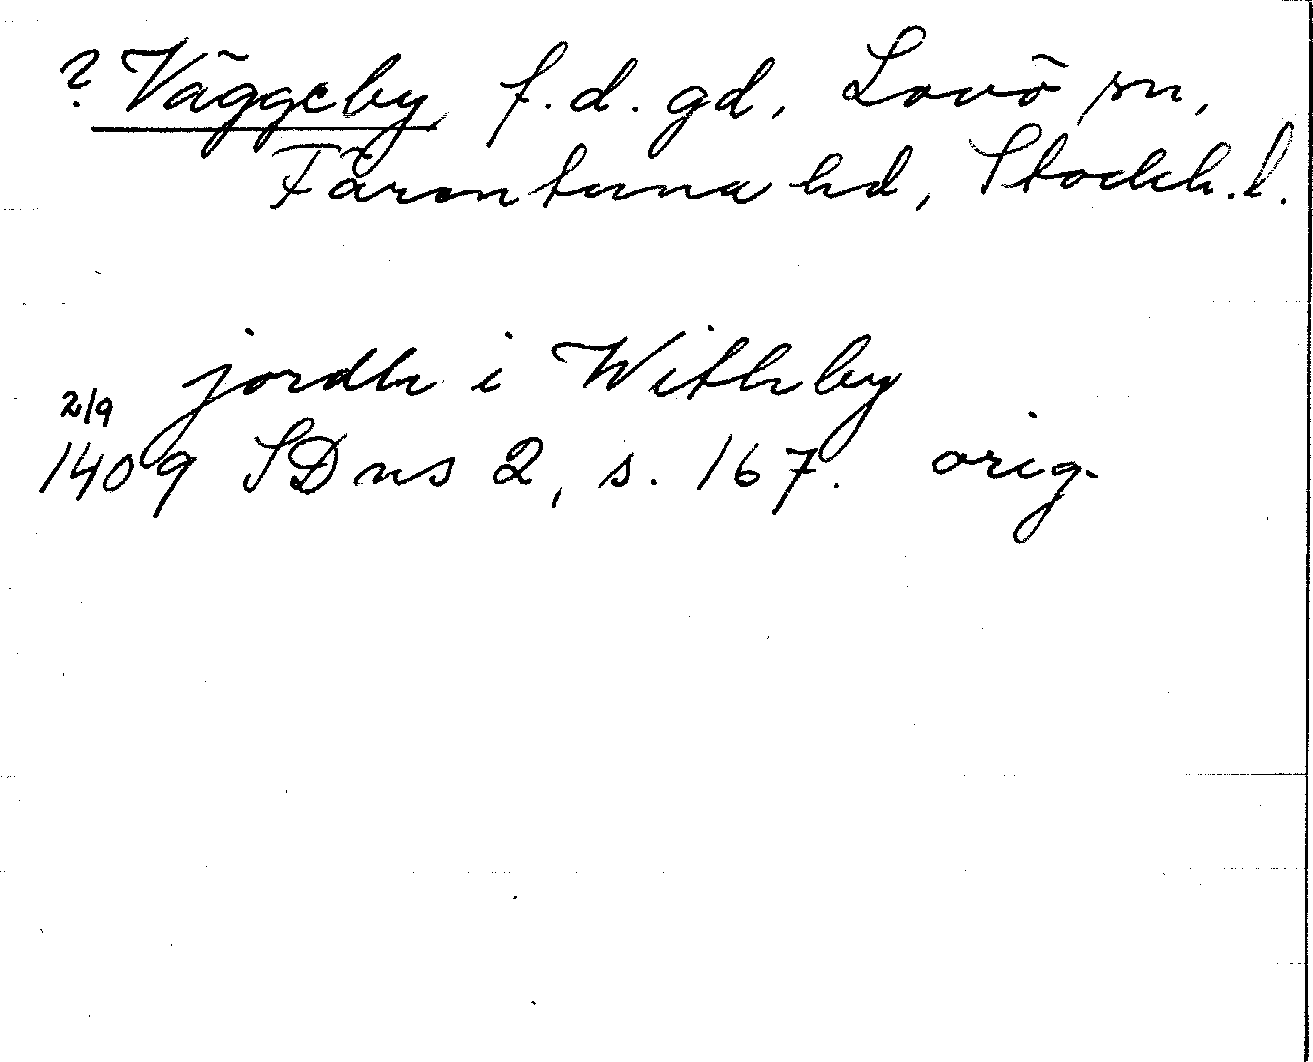 ? Väggeby f.d. gd, Lovö sn,
Färentuna hd, Stockh. l.
jordbr i Withby
2/9
1409 SD ns 2, s. 167. orig.